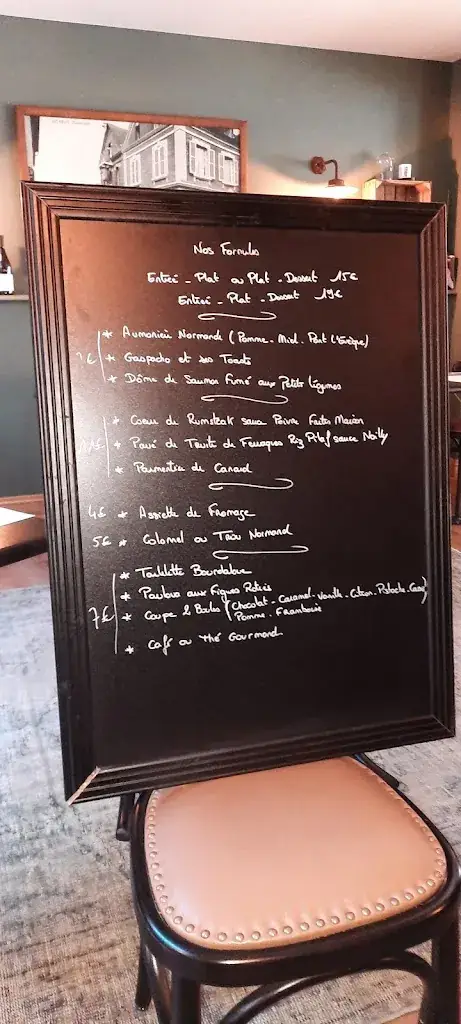 Nos Formules
Entrée - Plat ou Plat - Dessert 15€
Entrée - Plat - Dessert 19€
* Aumonière Normande (Pomme - Miel - Pont l'Evêque)
* Gaspacho et ses Toasts
* Dôme de Saumon Fumé aux Petits légumes
* Coeur de Rumsteak sauce Poivre Frites Maison
* Pavé de Truite de Riz Pilaf sauce Noilly
* Parmentier de Canard
4€ * Assiette de Fromage
5€ * Colonel ou Trou Normand
* Tartelette Bourdaloue
* Pavlova aux Figues Roties
7€ * Coupe 2 Boules (Chocolat - Caramel - Vanille - Citron - Pistache -
Pomme - Framboise
* Café ou Thé Gourmand